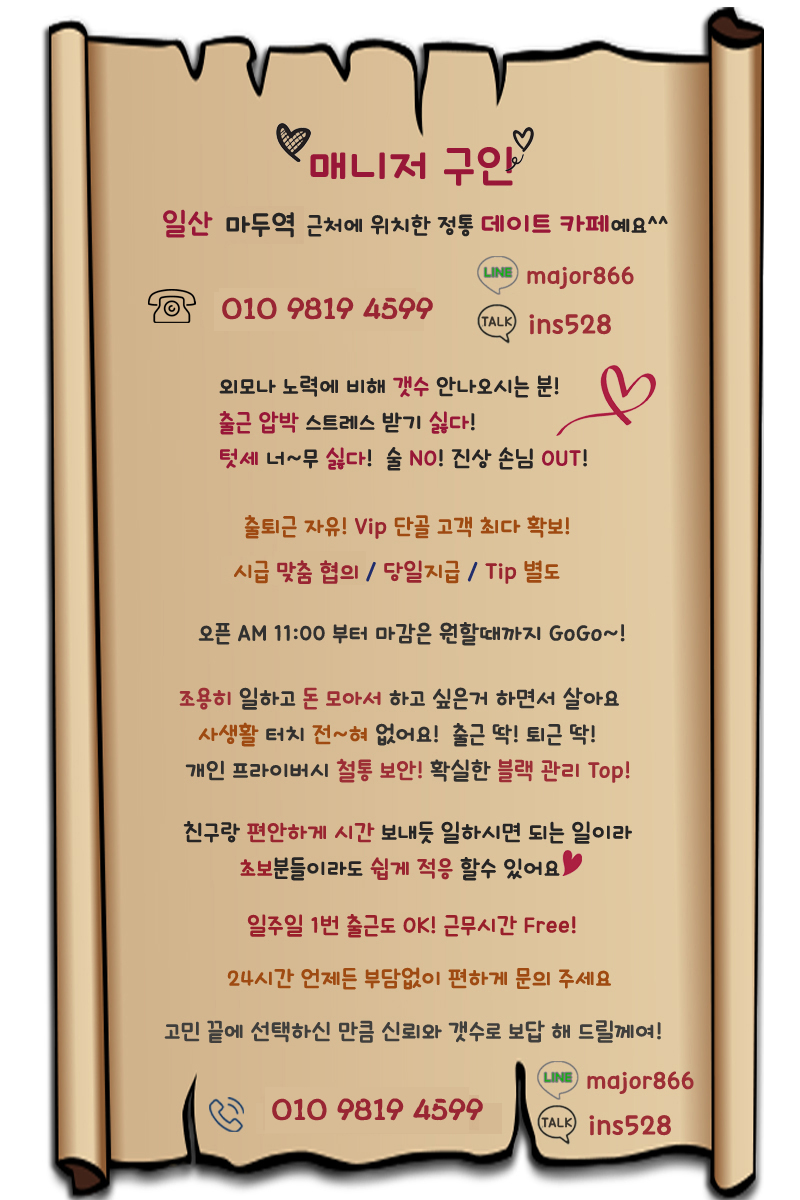 매니저 구인
일산 마두역 근처에 위치한 정통 데이트 카페예요^^
LINE major866
010 9819 4599
TALK ins528
외모나 노력에 비해 갯수 안나오시는 분!
출근 압박 스트레스 받기 싫다!
텃세 너~무 싫다! 술 NO! 진상 손님 OUT!
출퇴근 자유! Vip 단골 고객 최다 확보!
시급 맞춤 협의 / 당일지급 / Tip 별도
오픈 AM 11:00 부터 마감은 원할때까지 GoGo~!
조용히 일하고 돈 모아서 하고 싶은거 하면서 살아요
사생활 터치 전~혀 없어요! 출근 딱! 퇴근 딱!
개인 프라이버시 철통 보안! 확실한 블랙 관리 Top!
친구랑 편안하게 시간 보내듯 일하시면 되는 일이라
초보분들이라도 쉽게 적응 할수 있어요
일주일 1번 출근도 OK! 근무시간 Free!
24시간 언제든 부담없이 편하게 문의 주세요
고민 끝에 선택하신 만큼 신뢰와 갯수로 보답 해 드릴께여!
LINE major866
010 9819 4599
TALK ins528